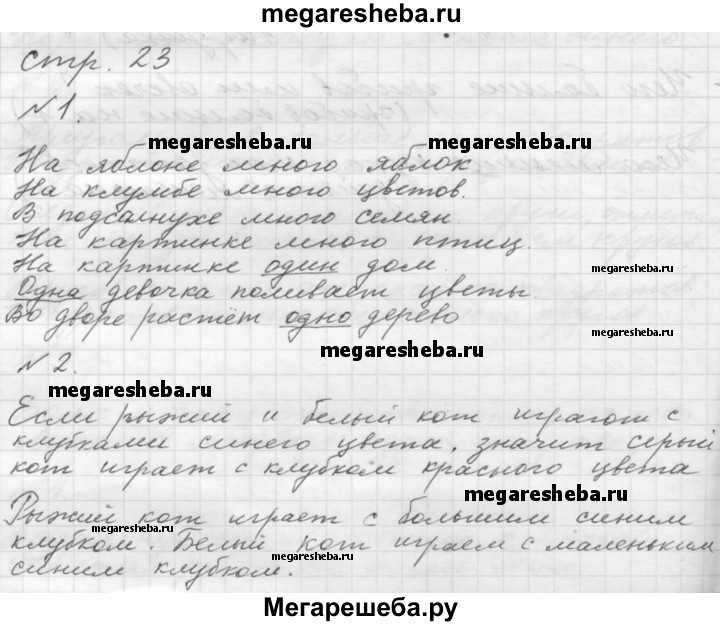 megaresheba.ru
стр. 23
№1.
megaresheba.ru megaresheba.ru
На яблоне много яблок.
На клумбе много цветов.
В подсолнухе много семян.
На картинке много птиц.
На картинке один дом.
megaresheba.ru
Одна девочка поливает цветы.
Во дворе растёт одно дерево
megaresheba.ru
megaresheba.ru
№2.
megaresheba.ru
Если рыжий и белый кот играют с
клубками синего цвета, значит серый
кот играет с клубком красного цвета
megaresheba.ru
Рыжий кот играет с большим синим
megaresheba.ru
клубком. Белый кот играем с маленьким
megaresheba.ru
синим клубком.
Мегарешеба.ру